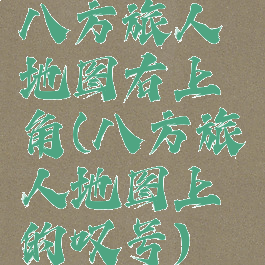 八方旅人
地图右上
角(八方旅
人地图上
的叹号)